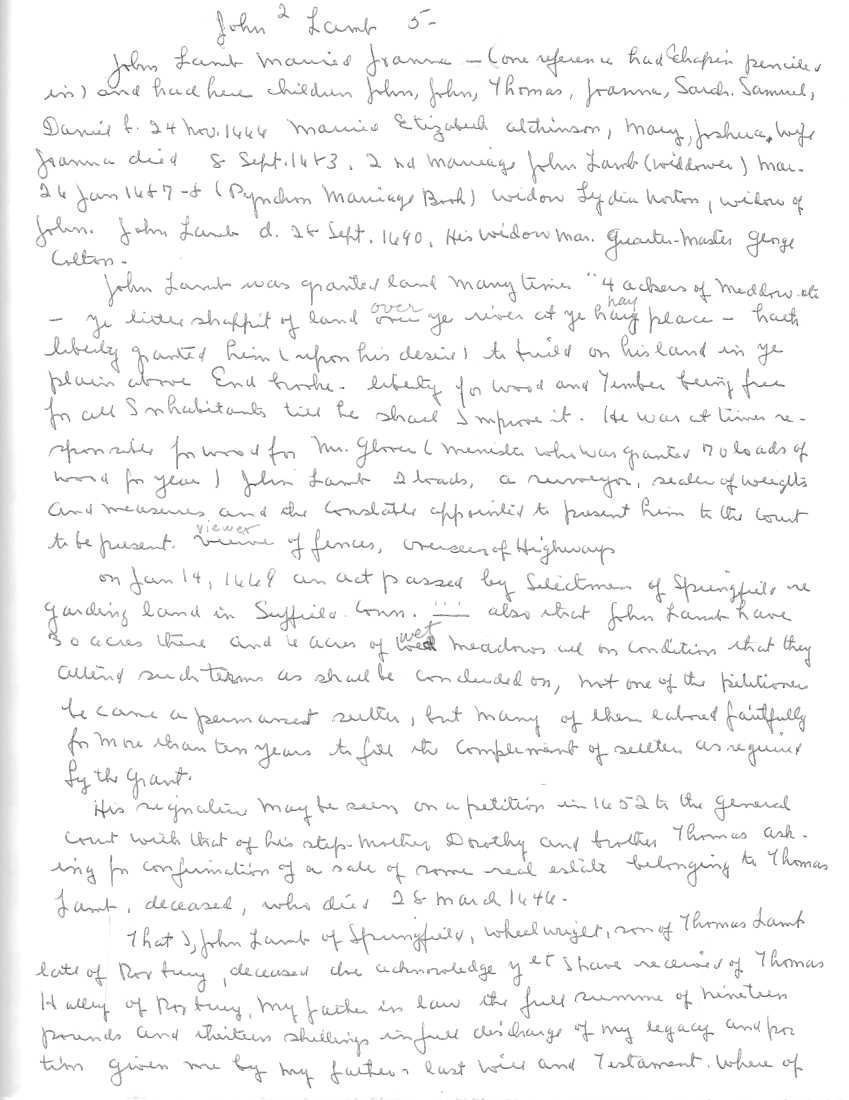 John 2 Lamb 5-
John Lamb Married Joanna - (one reference had Chapin penciled
in) and had here children John, John, Thomas, Joanna, Sarah. Samuel,
Daniel b. 24 Nov. 1666 Married Elizabeth Atchinson, Mary, Joshua, wife
Joanna died 8 Sept. 1683. 2nd Marriage John Lamb (widdower) mar.
26 Jan 1687-8 (Pynchon Marriage Book) widow Lydia Norton, widow of
John. John Lamb d. 28 Sept. 1690, His widow mar. Quarter-Master George
Colton.
John Lamb was granted land Many times "4 ackers of Meddow etc
- ye little shappit of land over ye river at ye hay place - hath
liberty granted him (upon his desire) to build on his land in ye
plain above End brooke. liberty for wood and Timber being free
for all Inhabitants till he shall Improve it. He was at times re-
sponsible for wood for Mr. Glover (Menister who was granted 70 loads of
wood for year) John Lamb 2 loads, a surveyor, sealer of weights
and measures and the Constable appointed to present him to the Court
to be present. viewer of fences, overseer of Highways
on Jan 14, 1669 an act passed by Selectmen of Springfield re
garding land in Suffield Conn. ... also that John Lamb have
30 acres there and 6 acres of wet Meadows all on condition that they
attend such terms as shall be concluded on, not one of the petitioner
became a permanent settler, but many of them labored faithfully
for More than ten years to fill the Complement of settlers as required
by the grant.
His signature May be seen on a petition in 1652 to the General
Court with that of his step-Mother Dorothy and brother Thomas ask-
ing for confirmation of a sale of some real estate belonging to Thomas
Lamb, deceased, who died 28 March 1646.
That I, John Lamb of Springfield, wheelwright, son of Thomas Lamb
late of Roxbury, deceased doe acknowledge yet I have received of Thomas
Hawley of Roxbury, My father in law the full summe of nineteen
pounds and thirteen shillings in full discharge of my legacy and por
tion given me by my father's last Will and Testament. Where of